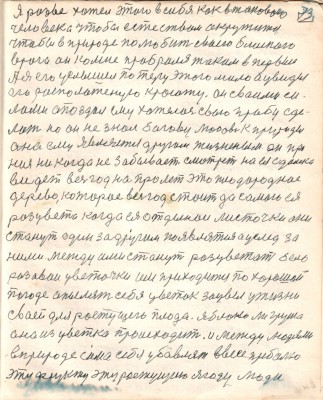 Я разве хотел этого в себя как в таковое 73
человека чтобы естеством окружить
чтобы в природе полюбить своего близкого
врага он ко мне пробрался таким в первый
Я его услышал по телу этого мило а увидел
его расположенную красоту. он своими си-
лами опоздал ему хотелось свою правду сде-
лать но он не знал Богову любовь к природе
она ему является другом жизненным он про
ния никогда не забывает смотреть на их сделки
ведет всегда на пролет это плодородное
дерево, которое всегда стоит до самого ея
розцвета когда ея отдельной листочки они
станут один за другим появлятся а услед за
ними между ими станут розцветать бело
розовыи цветочки им приходится по хорошой
погоде опылять себя цветок зацвел у жизни
своей для ростущего плода. яблоко и груша
она из цветка происходит. и между людями
в природе сама себя убавляет в весе
эту фрукту эту ростущию ягоду люди